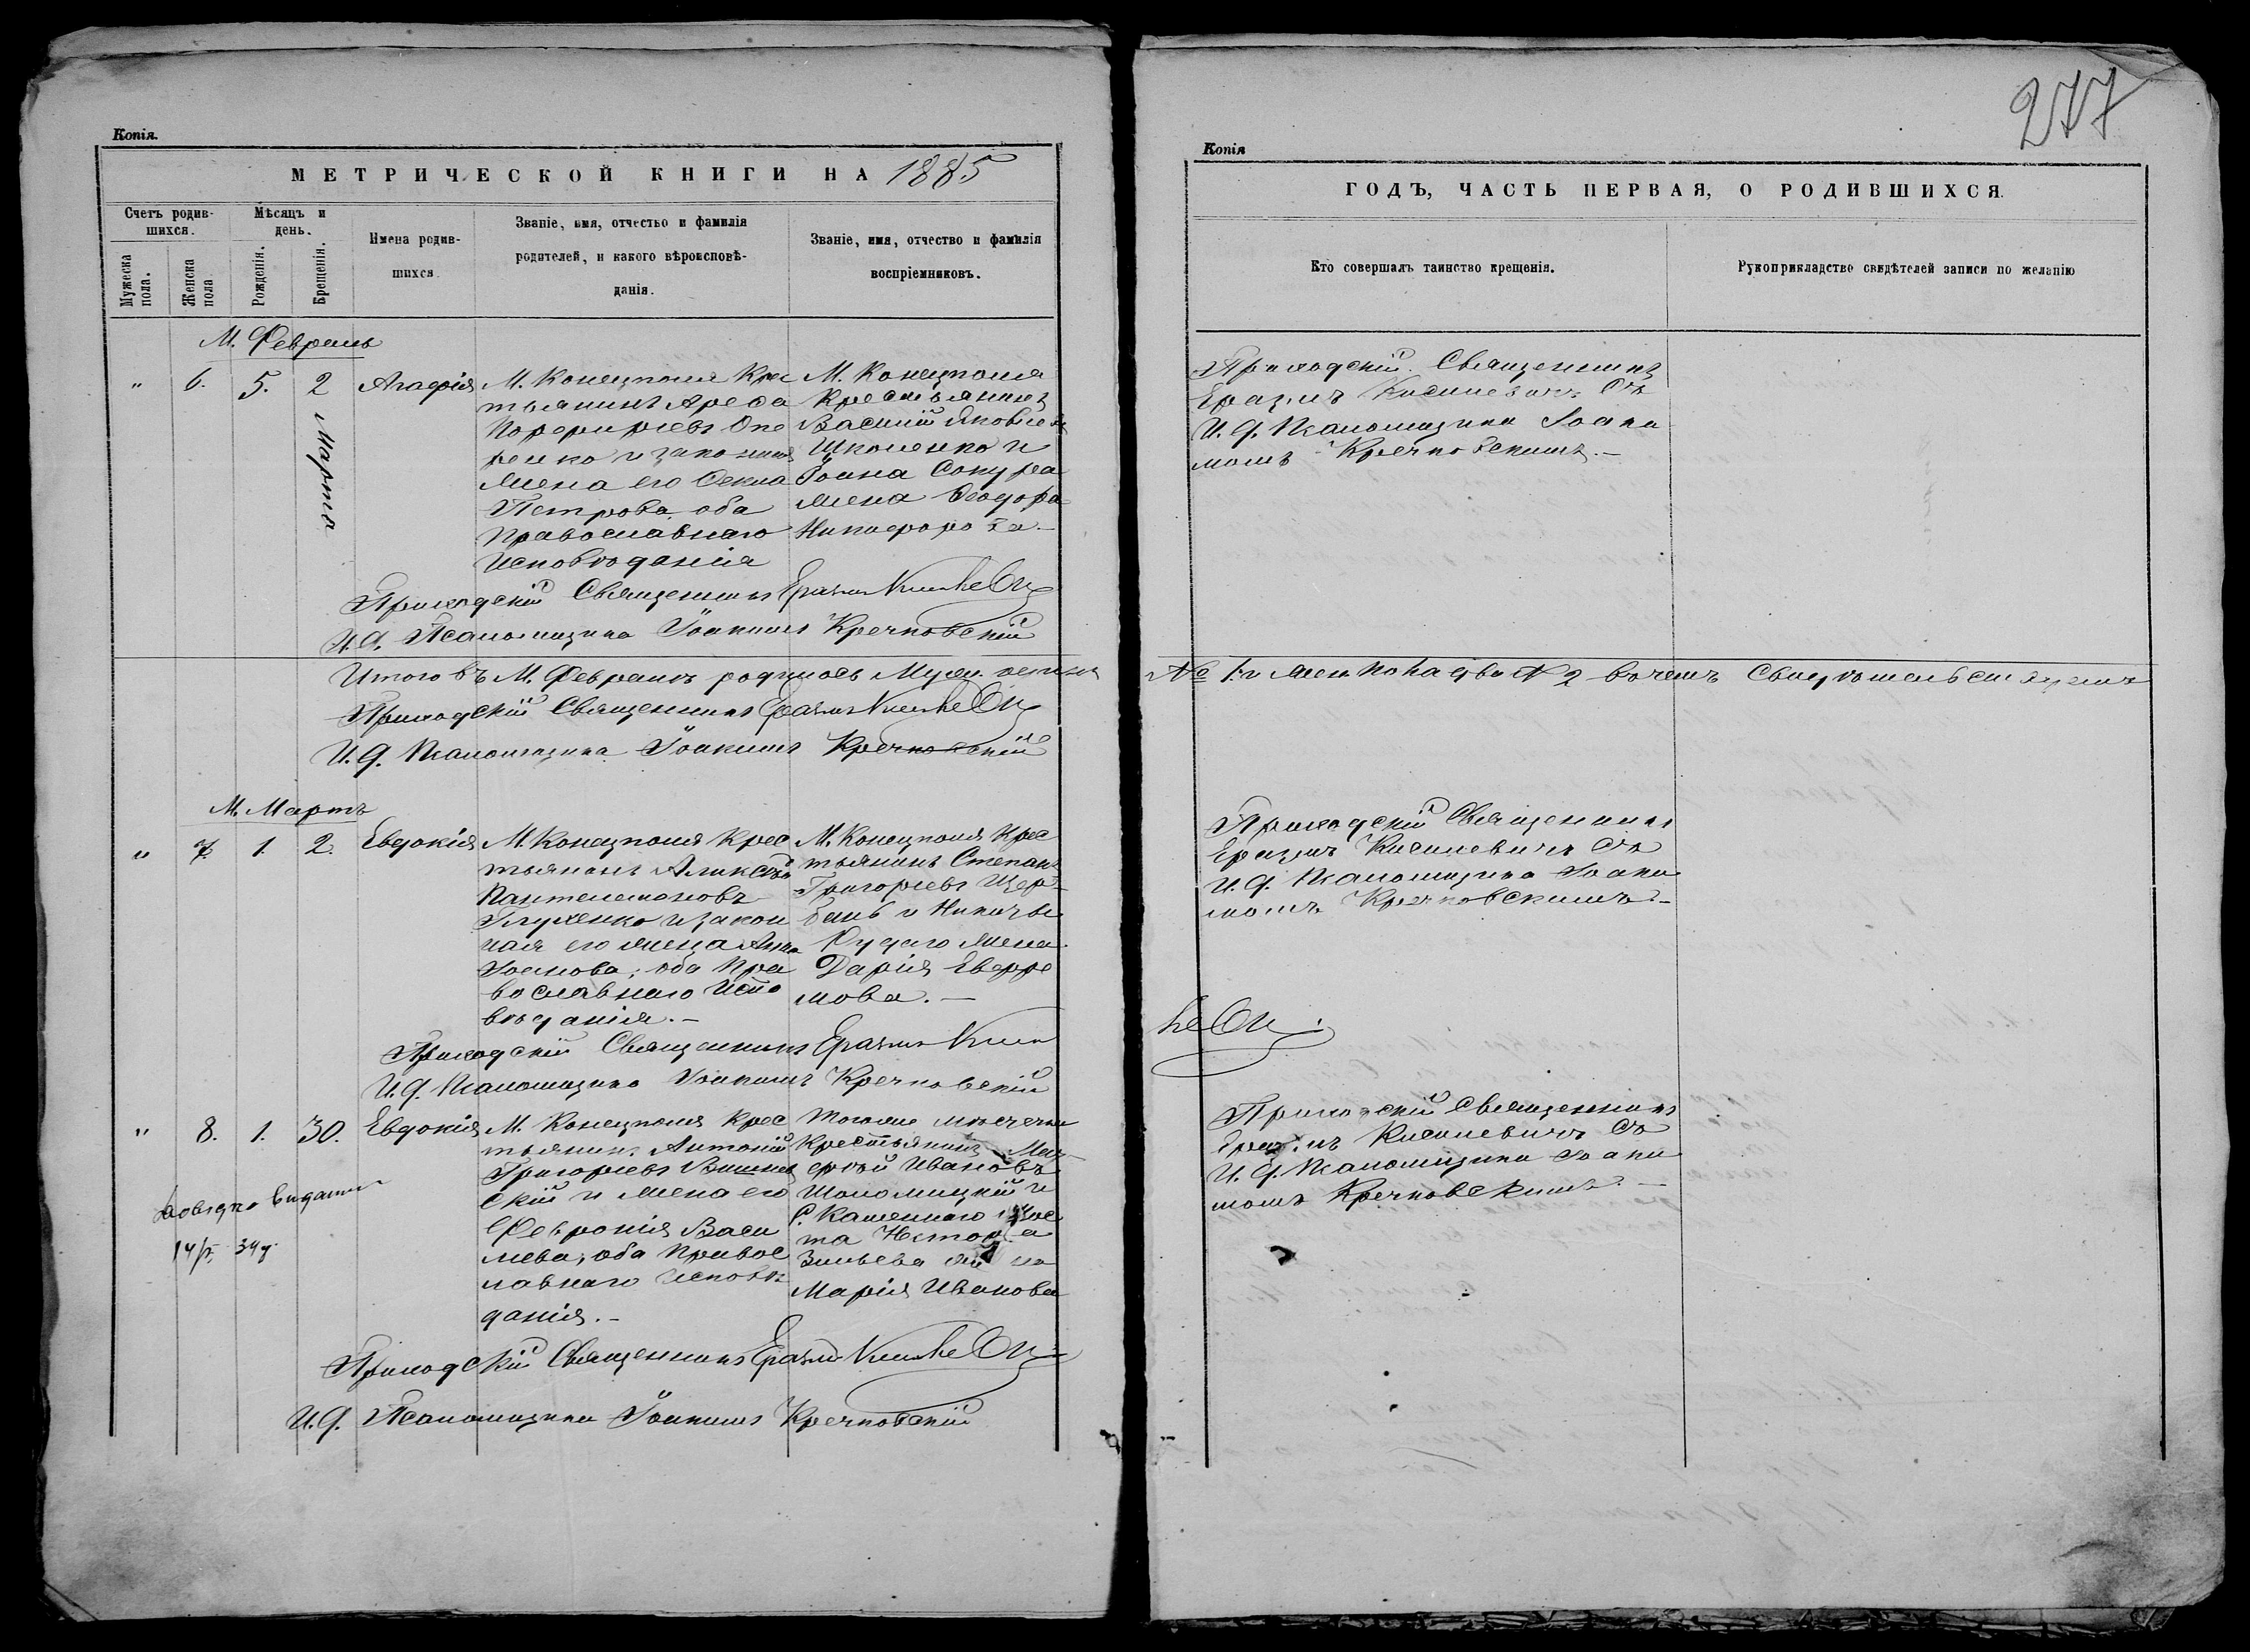 Копія.
МЕТРИЧЕСКОЙ КНИГИ НА 1885
Счетъ родив-
шихся.
Мѣсяцъ и
день.
Мужеска
пола.
Женска
пола
Рожденія.
Крещенія.
Имена родив-
шихся
Званіе, имя, отчество и фамилія
родителей, и какого вѣроисповѣ-
данія.
Званіе, имя, отчество и фамилія
воспріемниковъ.
М. Февраль
" 6. 5. 2 Марта
Агафія
М. Конецполя Крес
тьянинъ Арефа
Порфирьевъ Опе
ренко и законная
жена его Фекла
Петрова оба
православнаго
исповѣданія
М. Конецполя
Крестьянинъ
Василій Яковлевъ
Школенко и
жена Феодора
Никифорова.—
Приходскій Священникъ Еразмъ Кисилевичъ
И. д. Псаломщика Іоакимъ Кречковскій
Итого въ М. Февралѣ родилось Муж.
Приходскій Священникъ Еразмъ Кисилевичъ
И. д. Псаломщика Іоакимъ Кречковскій
М. Мартъ
" 7. 1. 2.
Евдокія
М. Конецполя Крес
тьянинъ Алексѣй
Пантелемоновъ
Глущенко и закон
ная его жена Анна
Іоанова; оба пра
вославнаго испо
вѣданія.—
М. Конецполя Крес
тьянинъ Степанъ
Григорьевъ Щер-
бань и Никиты
Рудаго жена
Дарія Евфре
мова.—
Приходскій Священникъ Еразмъ Кисилевичъ
И. д. Псаломщика Іоакимъ Кречковскій
" 8. 1. 30.
Евдокія
М. Конецполя Крес
тьянинъ Антоній
Григорьевъ Вишнев
скій и жена его
Февронія Васи
льева; оба правос
лавнаго исповѣ
данія.—
Тогоже мѣстечка
Крестьянинъ Мат
фѣй Ивановъ
Шоломицкій и
С. Каменнаго Мос
та
Марія Иванова
видана
14/г. 34 д.
Приходскій Священникъ Еразмъ Кисилевичъ
И. д. Псаломщика Іоакимъ Кречковскій
277
Копія
ГОДЪ, ЧАСТЬ ПЕРВАЯ, О РОДИВШИХСЯ.
Кто совершалъ таинство крещенія.
Рукоприкладство свидѣтелей записи по желанію
Приходскій Священникъ
Еразмъ Кисилевичъ Съ
И. д. Псаломщика Іоаки
момъ Кречковскимъ.—
жен. пола два № 2 въ чемъ свидѣтельствуемъ
Приходскій Священникъ
Еразмъ Кисилевичъ Съ
И. д. Псаломщика Іоаки
момъ Кречковскимъ.—
Приходскій Священникъ
Еразмъ Кисилевичъ Съ
И. д. Псаломщика Іоаки
момъ Кречковскимъ.—